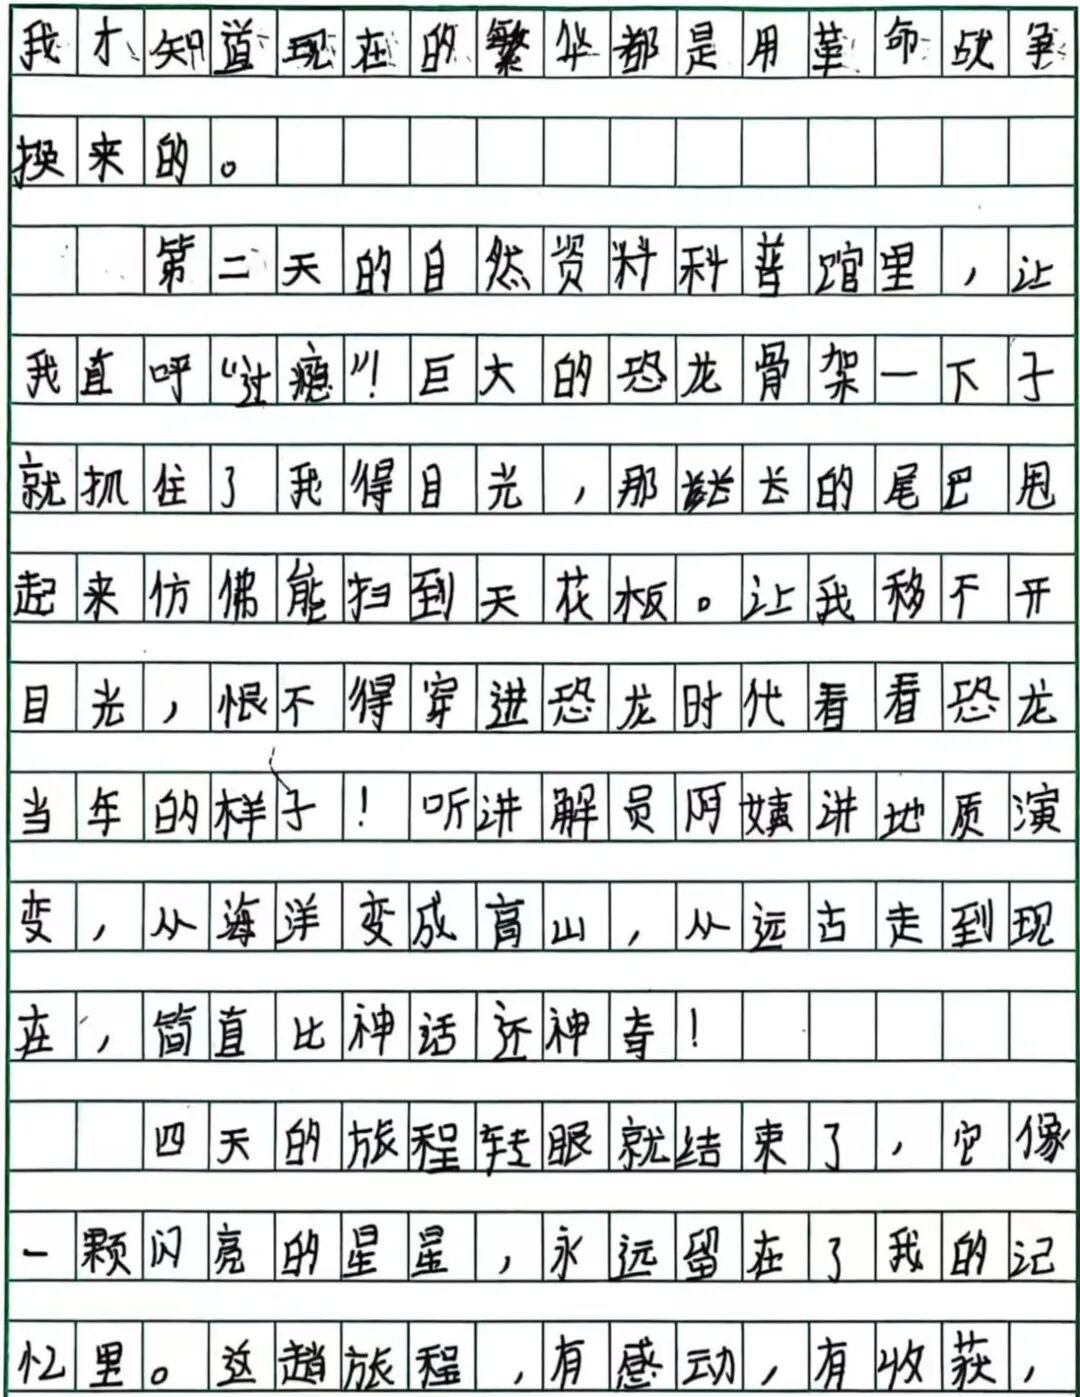 我才知道现在的繁华都是用革命战争
换来的。
第二天的自然资料科普馆里，让
我直呼“过瘾”！巨大的恐龙骨架一下子
就抓住了我得目光，那长的尾巴甩
起来仿佛能扫到天花板。让我移不开
目光，恨不得穿进恐龙时代看看恐龙
当年的样子！听讲解员阿姨讲地质演
变，从海洋变成高山，从远古走到现
在，简直比神话还神奇！
四天的旅程转眼就结束了，它像
一颗闪亮的星星，永远留在了我的记
忆里。这趟旅程，有感动，有收获，